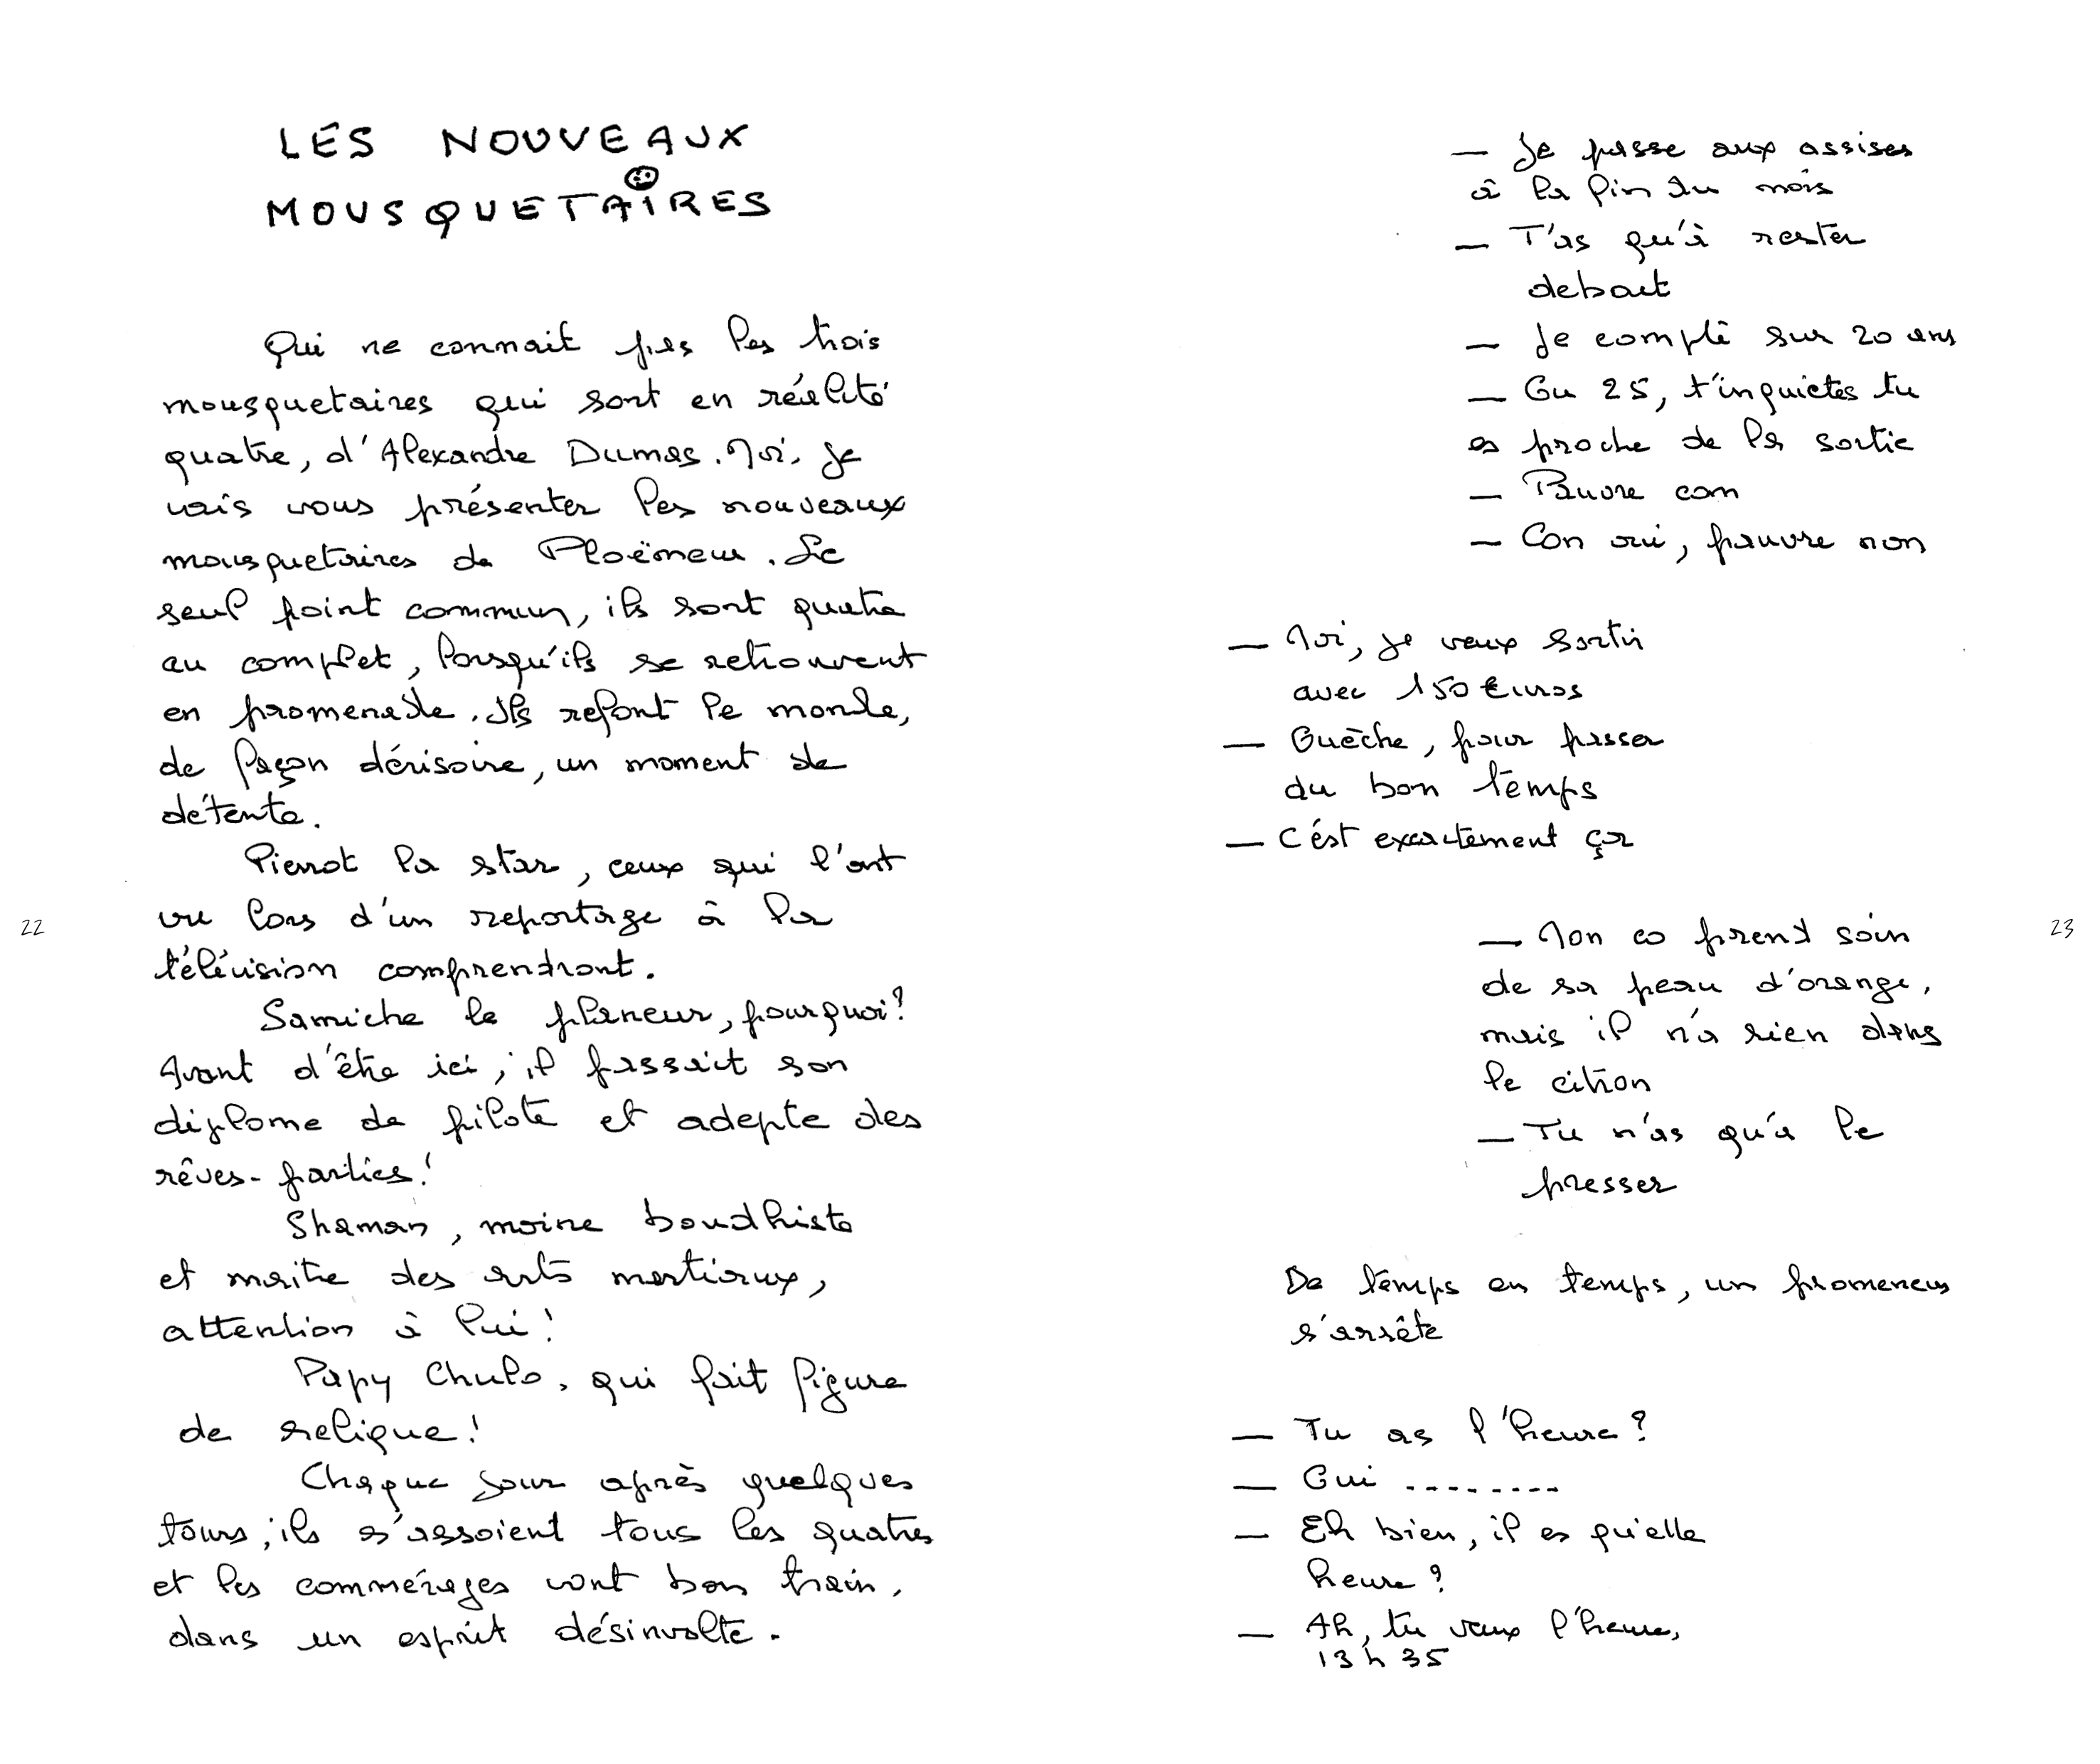 LES NOUVEAUX
MOUSQUETAIRES
Qui ne connait pas les trois
mousquetaires qui sont en réalité
quatre, d'Alexandre Dumas. Moi, je
vais vous présenter les nouveaux
mousquetaires de Ploëmeur. Le
seul point commun, ils sont quatre
au complet, lorsqu'ils se retrouvent
en promenade. Ils refont le monde,
de façon dérisoire, un moment de
détente.
Pierrot la star, ceux qui l'ont
vu lors d'un reportage à la
télévision comprendront.
Samiche le planeur, pourquoi?
Avant d'être ici, il passait son
diplome de pilote et adepte des
rêves-parties!
Shaman, moine boudhiste
et maitre des arts martiaux,
attention à lui!
Papy Chulo, qui fait figure
de relique!
Chaque jour après quelques
tours, ils s'assoient tous les quatres
et les commérages vont bon train,
dans un esprit désinvolte.
22
— Je passe aux assises
à la fin du mois
— T'as qu'à rester
debout
— Je compte sur 20 ans
— Ou 25, t'inquiètes tu
es proche de la sortie
— Pauvre con
— Con oui, pauvre non
— Moi, je veux sortir
avec 150 €uros
— Ouèche, pour passer
du bon temps
— C'est exactement ça
— Mon co prend soin
de sa peau d'orange,
mais il n'a rien dans
le citron
— Tu n'as qu'à le
presser
De temps en temps, un promeneur
s'arrête
— Tu as l'heure?
— Oui .........
— Eh bien, il es qu'elle
heure?
— Ah, tu veux l'heure,
13 h 35
23